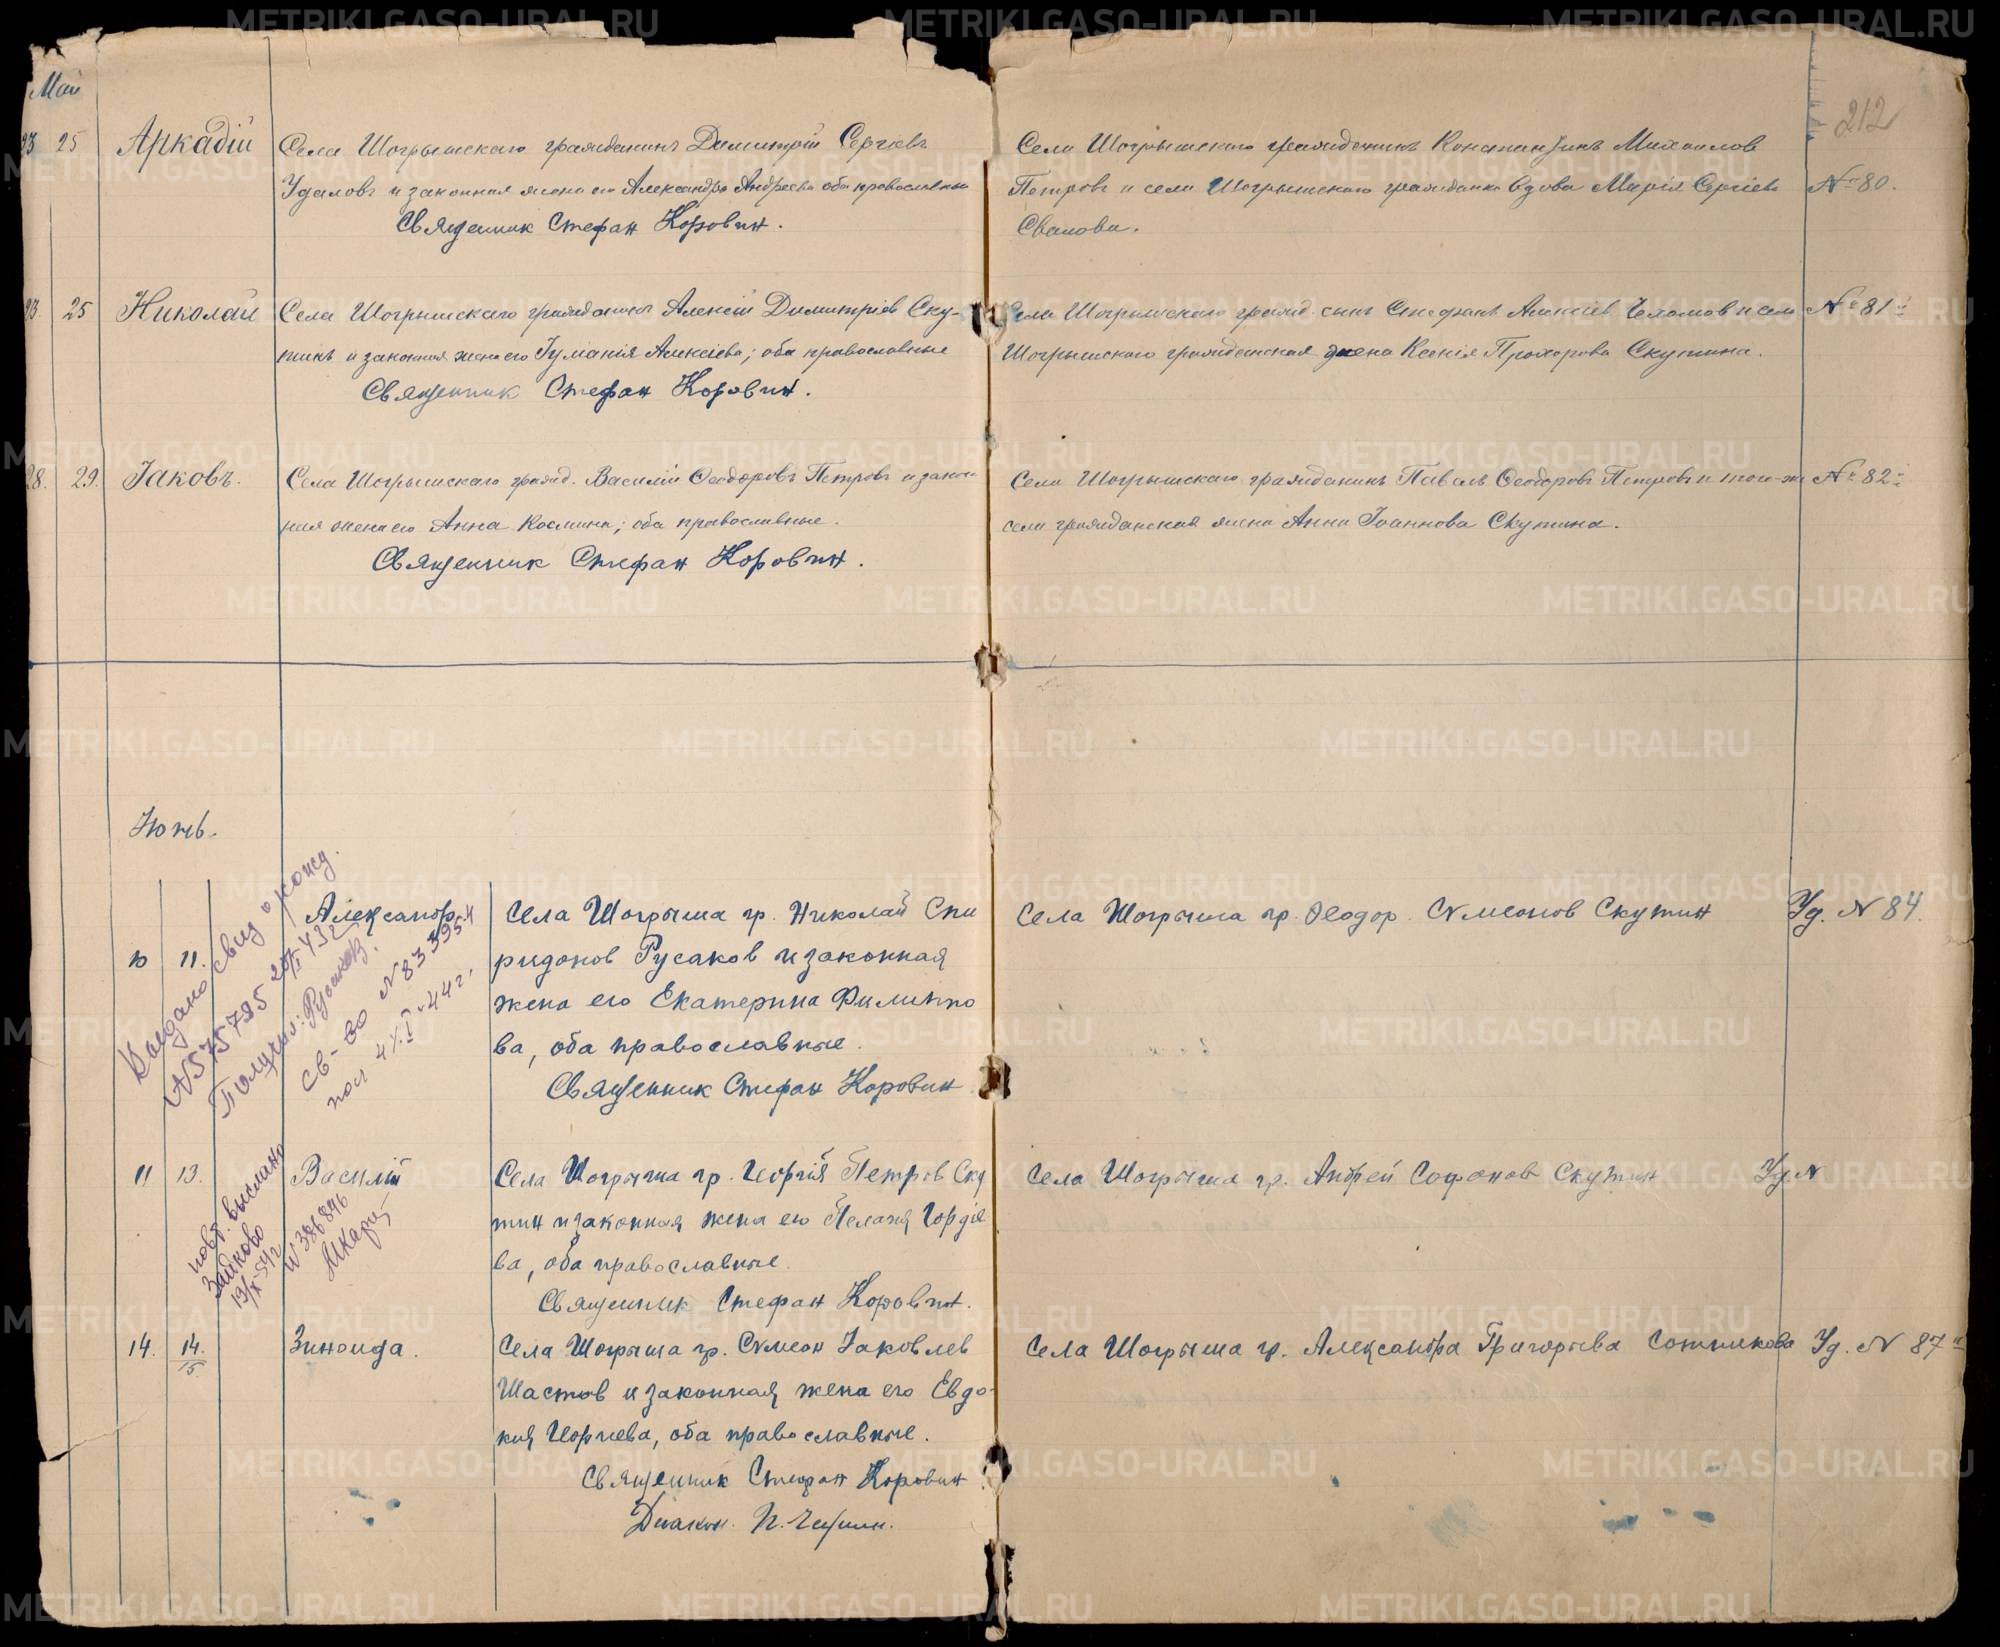 212
Май
23 25 Аркадій Села Шогрышскаго гражданинъ Димитрій Сергіевъ
Удаловъ и законная жена его Александра Андреева оба православные
Священник Стефан Коровин.
Села Шогрышскаго гражданинъ Константинъ Михаилов
Петровъ и села Шогрышскаго гражданка вдова Марія Сергіева
Свалова.
№ 80.
23 25 Николай Села Шогрышскаго гражданинъ Алексій Димитріев Ску-
тинъ и законная жена его Алексіева; оба православные
Священник Стефан Коровин.
Села Шогрышскаго гражд. сынъ Стефанъ Алексіев и села
Шогрышскаго гражданская жена Ксенія Прохорова Скутина.
№ 81
28. 29. Іаковъ. Села Шогрышскаго гражд. Василій Ѳеодоровъ Петровъ и закон
ная жена его Анна Космина; оба православные.
Священник Стефан Коровин.
Села Шогрышскаго гражданинъ Павелъ Ѳеодоровъ Петровъ и того-ж
села гражданская жена Анна Іоаннова Скутина.
№ 82
Июнь.
10 11. Александр. Села Шогрыша гр. Николай Спи
ридонов Русаков и законная
жена его Екатерина Филиппо
ва, оба православные.
Священник Стефан Коровин
Села Шогрыша гр. Ѳеодор. Сѵмеонов Скутин
Уд. N 84.
Выдано свид о рожд.
N 575785
Получил: Русаков.
св-во N 833954
11 13. Василій Села Шогрыша гр. Георгій Петров Ску
тин и законная жена его Пелагея Гордіе
ва, оба православные.
Священник Стефан Коровин.
Села Шогрыша гр. Андрей Софонов Скутин
Уд. N
повт. выслано
Зайково
19/X-54г
N 386896
14. 14./15. Зинаида. Села Шогрыша гр. Сѵмеон Іаковлев
Шастов и законная жена его Евдо-
кия Георгиева, оба православные.
Священник Стефан Коровин
Диакон. П.
Села Шогрыша гр. Александра Григорьева Сотникова
Уд. N 87
METRIKI.GASO-URAL.RU